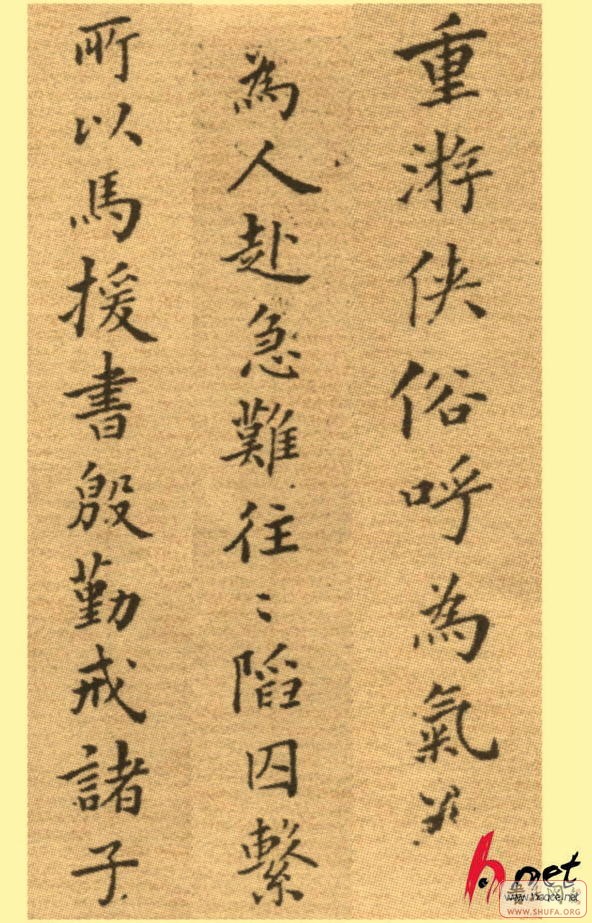 重游俠俗呼為氣
為人赴急難往〻陷囚繫
所以馬援書殷勤戒諸子
net
WWW.SHUFA.ORG